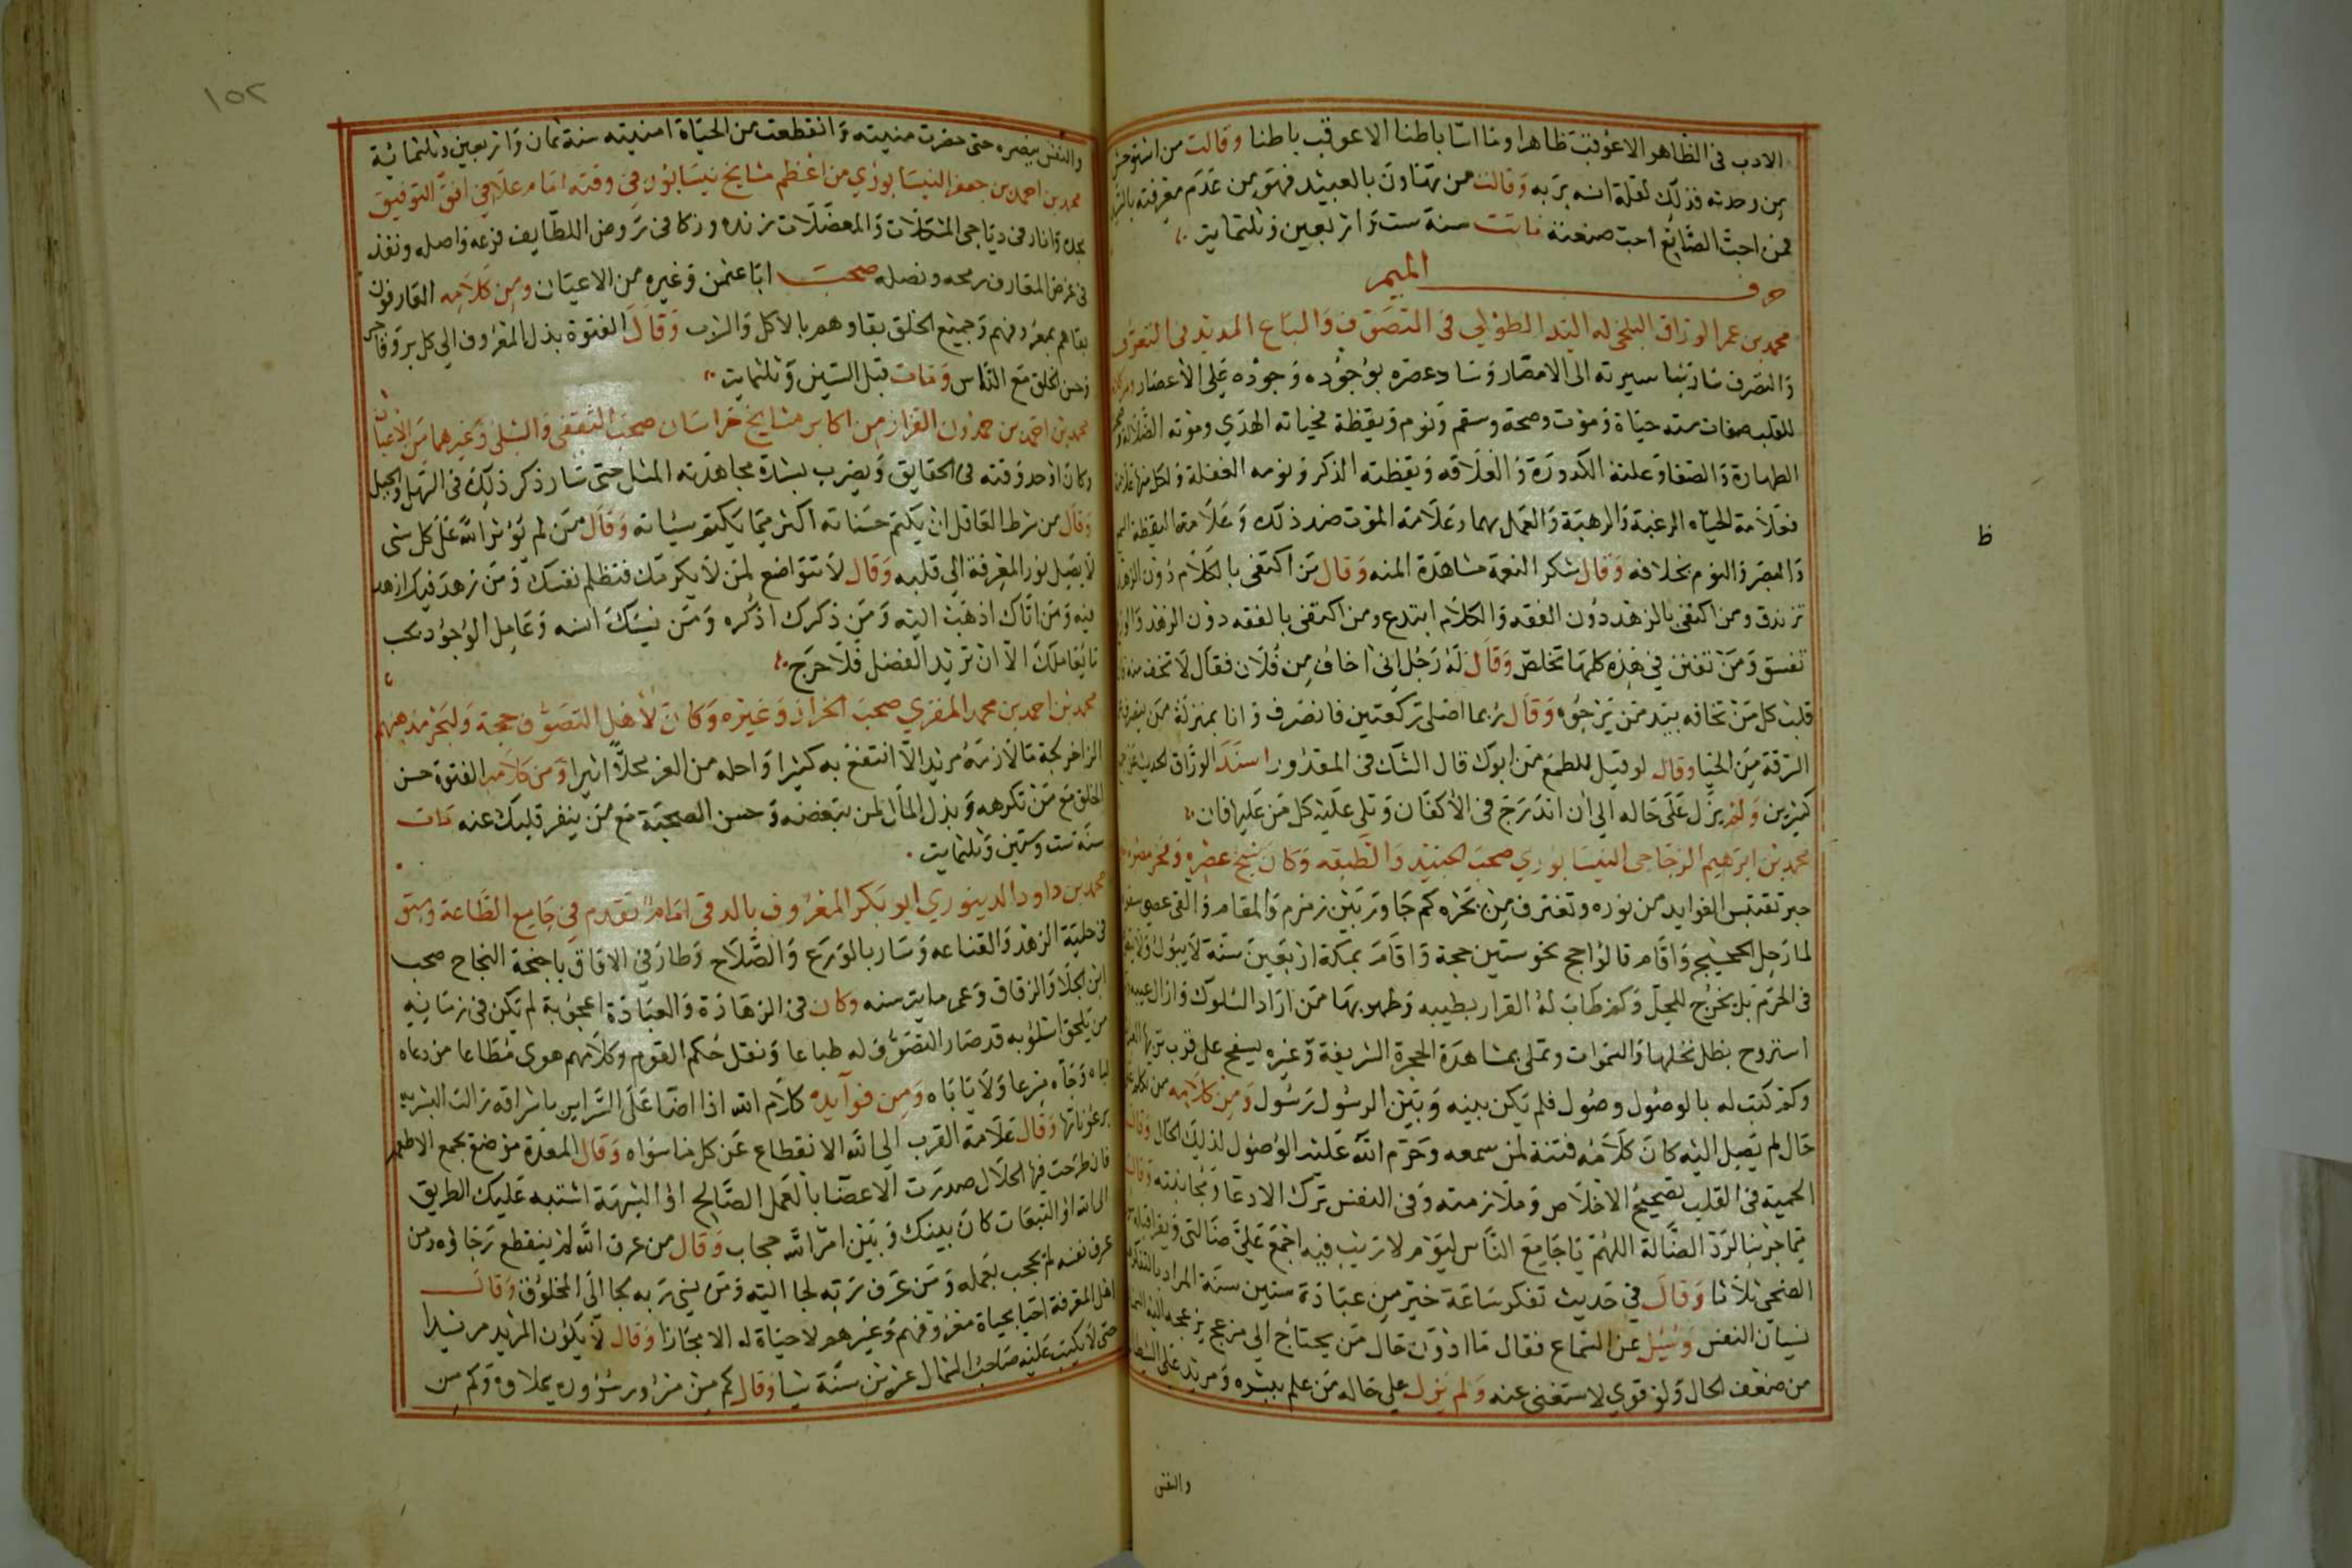 الادب فى الظاهر الا عوقبت ظاهرا وما اسا باطنا الا عوقب باطنا وقالت من استوحش
من وحدته فذلك لقلة انسه بربه وقالت من تهاون بالعبيد فهو من عدم معرفته
فمن احب الصانع احب صنعته ماتت سنة ست واربعين وثلثمايه
حرف الميم
محمد بن عمر الوراق البلخى له اليد الطولي فى التصوف والباع المديد فى التعرف
والتصرف سيرته الى الامصار وساد عصره بوجوده وجوده على الاعصار
للقلب صفات سته حياة وموت وصحة وسقم ونوم ويقظة فحياته الهدي وموته الضلالة
الطهارة والصفا وعلته الكدورة والعلاقه ويقظته الذكر ونومه الغفلة ولكل منها
فعلامة الحياه الرغبة والرهبة والعمل بهما وعلامة الموت ضد ذلك وعلامة اليقظة
والبصر والنوم بخلافه وقال شكر النعمة مشاهدة المنه وقال من اكتفى بالكلام دون الزهد
تزندق ومن اكتفى بالزهد دون الفقه والكلام ابتدع ومن اكتفى بالفقه دون الزهد
تفسق ومن تفنن في هذه كلها تخلص وقال له رجل إنى اخاف من فلان فقال لا تخف منه
قلب كل من تخافه بيد من ترجوه وقال ربما اصلى ركعتين فانصرف وانا بمنزلة من
السرقة من الحيا وقال لو قيل للطمع من ابوك قال الشك فى المقدور اسند الوراق الحديث
كثيرين ولم يزل على حاله الى ان اندرج فى الاكفان وتلى عليه كل من عليها فان
محمد بن ابرهيم الزجاجى النيسابوري صحب الجنيد والطبقه وكان شيخ عصره وفخر مصره
حبر تقتبس الفوايد من نوره وتغترف من بحره كم جاور بين زمزم والمقام والقى عصى
لما رحل الحجيج واقام قالوا حج نحو ستين حجة واقام بمكة اربعين سنة لا يبول ولا
فى الحرم بل يخرج للحل وكم طاب له القرار بطيبه وظهر بها ممن اراد السلوك وازال عيبه
استروح بظل نخلها والسموات وتملى بمشاهدة الحجرة الشريفة وغيره يسفح على قرب
وكم كتب له بالوصول وصول فلم يكن بينه وبين الرسول رسول ومن كلامه من تكلم
حال لم يصل اليه كان كلامه فتنة لمن سمعه وحرم الله عليه الوصول لذلك الحال وقال
الحمية فى القلب تصحيح الاخلاص وملازمته وفى النفس ترك الادعا ومجانبته وقال
مما جربنا لرد الضالة اللهم يا جامع الناس ليوم لا ريب فيه اجمع علي ضالتى ويقرا قبله
الضحى ثلاثا وقال في حديث تفكر ساعة خير من عبادة ستين سنة المراد
نسيان النفس وسئل عن السماع فقال ما ادون حال من يحتاج الى مزعج يزعجه اليه
من ضعف الحال ولو قوي لاستغنى عنه ولم يزل علي حاله من علم ينشره ومريد
والنفس
ظ
١٥٢
والنفس يبصره حتى حضرت منيته وانقطعت من الحياة امنيته سنة ثمان واربعين وثلثمائة
محمد بن احمد بن جعفر النيسابوري من اعظم مشايخ نيسابور في وقته امام علا في افق التوفيق
مجده وانار فى دياجى المشكلات والمعضلات زنده وزكا فى روض اللطايف فرعه واصله ونفذ
فى غرض المعارف رمحه ونصله صحب ابا عثمن وغيره من الاعيان ومن كلامه العارفون
بقاهم بمعروفهم وجميع الخلق بقاوهم بالاكل والشرب وقال الفتوة بذل المعروف الى كل بر وفاجر
وحسن الخلق مع الناس ومات قبل الستين وثلثمايه
محمد بن احمد بن حمدون الفراز من اكابر مشايخ خراسان صحب الثقفى والشبلى وغيرهما من الاعيان
وكان اوحد وقته فى الحقايق ويضرب بشدة مجاهدته المثل حتى سار ذكر ذلك فى السهل والجبل
وقال من شرط العاقل ان يكتم حسناته اكثر مما يكتم سيئاته وقال من لم يؤثر الله على كل شى
لا يصل نور المعرفة الي قلبه وقال لا تتواضع لمن لا يكرمك فتظلم نفسك ومن زهد فيك ازهد
فيه ومن اتاك اذهب اليه ومن ذكرك اذكره ومن نسيك انسه وعامل الوجود بحسب
ما يعاملك الا ان تريد الفضل فلا حرج
محمد بن احمد بن محمد المقري صحب الخراز وغيره وكان لأهل التصوف حجة ولبحر مذهبهم
الزاخر لجة ما لازمه مريد الا انتفع به كثيرا واحله من العز محلا اثيرا ومن كلامه الفتوة حسن
الخلق مع من تكرهه وبذل المال لمن تبغضه وحسن الصحبة مع من ينفر قلبك عنه مات
سنة ست وستين وثلثمايه
محمد بن داود الدينوري ابو بكر المعروف بالدقى امام تقدم في جامع الطاعة وسبق
فى حلية الزهد والقناعه وسار بالورع والصلاح وطار في الافاق باجنحة النجاح صحب
ابن الجلا والزقاق وعمر ماية سنه وكان فى الزهادة والعبادة اعجوبة لم يكن فى زمانه
من يلحق اسلوبه قد صار التصوف له طباعا ونقل حكم القوم وكلامهم هوى مطاعا من دعاه
لباه وجاه سرعا ولا ياباه ومن فوايده كلام الله اذا اضا على السراير باشراقه زالت البشريه
برعوناتها وقال علامة القرب الى الله الانقطاع عن كل ما سواه وقال المعدة موضع يجمع الاطعمه
فان طرحت فيها الحلال صدرت الاعضا بالعمل الصالح او الشبهة اشتبه عليك الطريق
الى الله او التبعات كان بينك وبين امر الله حجاب وقال من عرف الله لم ينقطع رجاؤه ومن
عرف نفسه لم يعجب بعمله ومن عرف ربه لجا اليه ومن نسى ربه لجا الى المخلوق وقال
اهل المعرفة احيا بحياة معروفهم وغيرهم لا حياة له الا مجازا وقال لا يكون المريد مريدا
حتى لا يكتب عليه صاحب الشمال عشرين سنة شيا وقال كم من مسرور سروره بلاوه وكم من